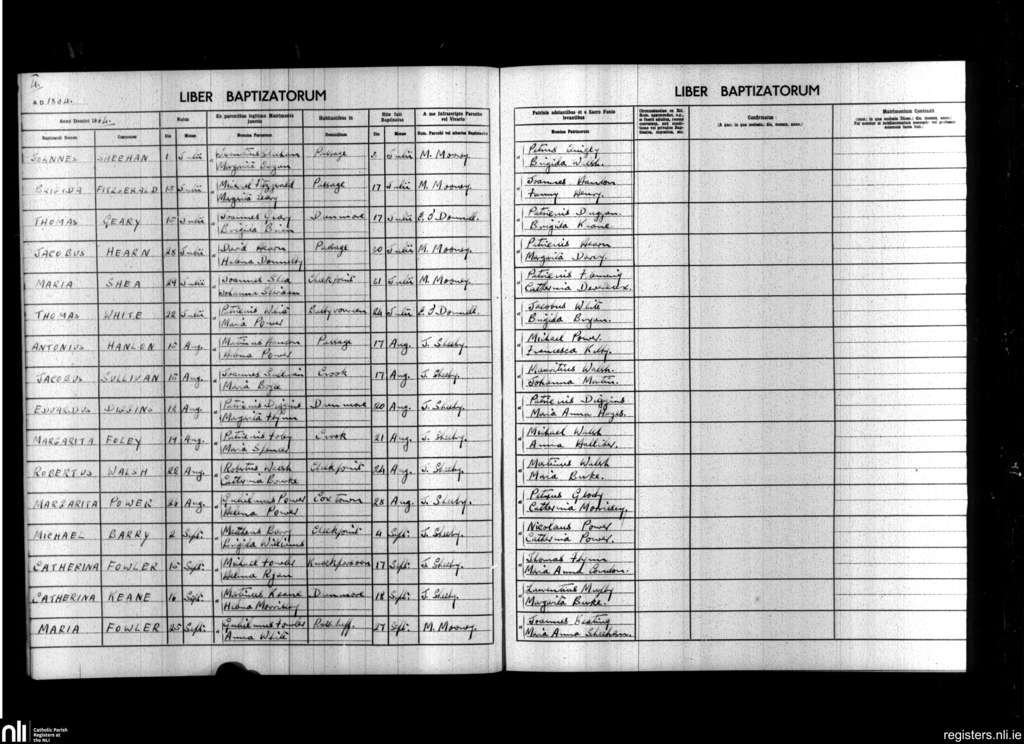 A.D. 1864.
LIBER BAPTIZATORUM
LIBER BAPTIZATORUM
Anno Domini 1864.
Natus
Ex parentibus legitimo Matrimonio junctis
Habitantibus in
Rite fuit Baptizatus
A me infrascripto Parocho vel Vicario
Patrinis adstantibus et a Sacro Fonte levantibus
Confirmatus
Matrimonium Contraxit
Baptizati Nomen
Cognomen
Die
Mense
Nomina Parentum
Domicilium
Die
Mense
Nomina Patrinorum
JOANNES SHEEHAN 1 Julii
Passage Julii M. Mooney
Brigida Walsh.
BRIGIDA FITZGERALD 15 Julii
Michael Fitzgerald Passage 17 Julii M. Mooney
Margarita Geary
Joannes Hanlon
Fanny Henry.
THOMAS GEARY 15 Julii
Joannes Geary Dunmore 17 Julii E. O'Donnell.
Patricius Duggan.
Brigida Keane
JACOBUS HEARN 28 Julii
David Hearn Passage 30 Julii M. Mooney
Helena Donnelly
Patricius Hearn
Margarita Darcy.
MARIA SHEA 29 Julii
Joannes Shea Cheekpoint 31 Julii M. Mooney.
Patricius Fanning
Catherina Devereux.
THOMAS WHITE 22 Julii
Patricius White 24 Julii E. O'Donnell.
Maria Power
Jacobus White
Brigida Bryan.
ANTONIUS HANLON 15 Aug.
Passage 17 Aug. J. Sheehy.
Helena Power
Michael Power.
Francesca Kelly.
JACOBUS SULLIVAN 15 Aug.
Joannes Sullivan Crook 17 Aug. J. Sheehy.
Maria
Mauritius Walsh.
Johanna Martin.
EDUARDUS DIGGINS 18 Aug.
Patricius Diggins Dunmore 20 Aug. J. Sheehy.
Margarita Flynn
Patricius Diggins
Maria Anna Hayes.
MARGARITA FOLEY 19 Aug.
Patricius Foley Crook 21 Aug. J. Sheehy.
Maria Spencer
Michael Walsh
Anna
ROBERTUS WALSH 22 Aug.
Robertus Walsh Cheekpoint 24 Aug. J. Sheehy.
Catherina Bourke
Martinus Walsh
Maria Burke.
MARGARITA POWER 26 Aug.
Gulielmus Power Coxtown 28 Aug. J. Sheehy.
Helena Power
Petrus Glody
Catherina Morrissey.
MICHAEL BARRY 2 Sept.
Barry Cheekpoint 4 Sept. J. Sheehy.
Brigida Williams
Nicolaus Power
Catherina Power.
CATHERINA FOWLER 15 Sept.
Michael Fowler 17 Sept. J. Sheehy.
Helena Ryan
Thomas Flynn
Maria Anna Condon.
CATHERINA KEANE 16 Sept.
Martinus Keane Dunmore 18 Sept. J. Sheehy.
Helena Morrissey
Laurentius
Margarita Burke.
MARIA FOWLER 25 Sept.
Gulielmus Fowler 27 Sept. M. Mooney.
Anna White
Joannes Keating
Maria Anna Sheehan.
nli
Catholic Parish
Registers at
the NLI
registers.nli.ie